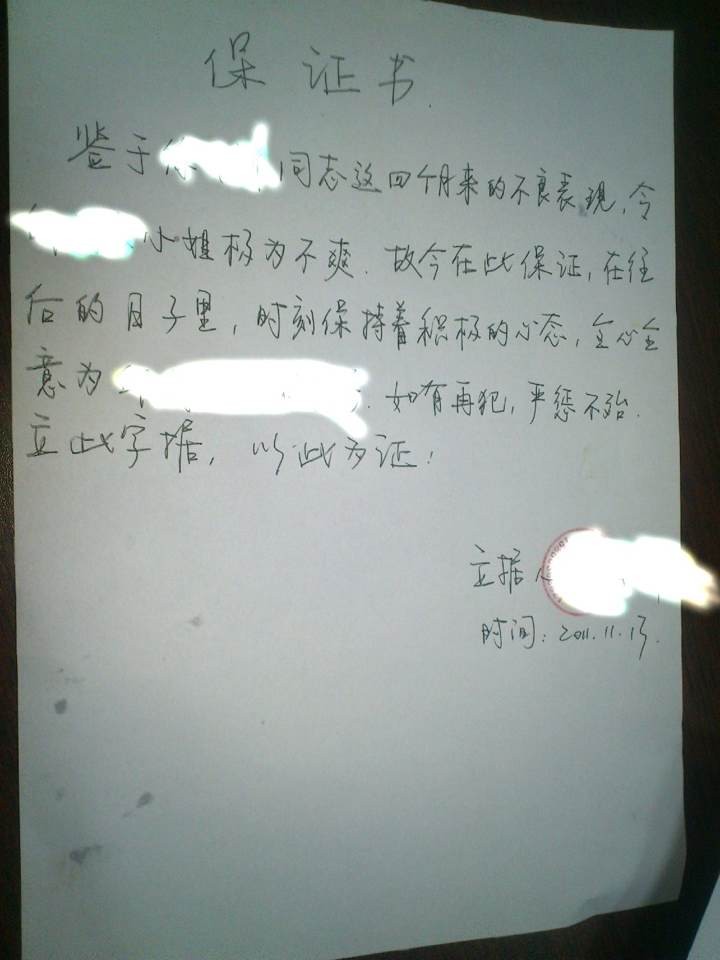 保证书
鉴于 同志这四个月来的不良表现,令
小姐极为不爽.故今在此保证,在往
后的日子里,时刻保持着积极的心态,全心全
意为 .如有再犯,严惩不殆.
立此字据,以此为证!
立据
时间:2011.11.